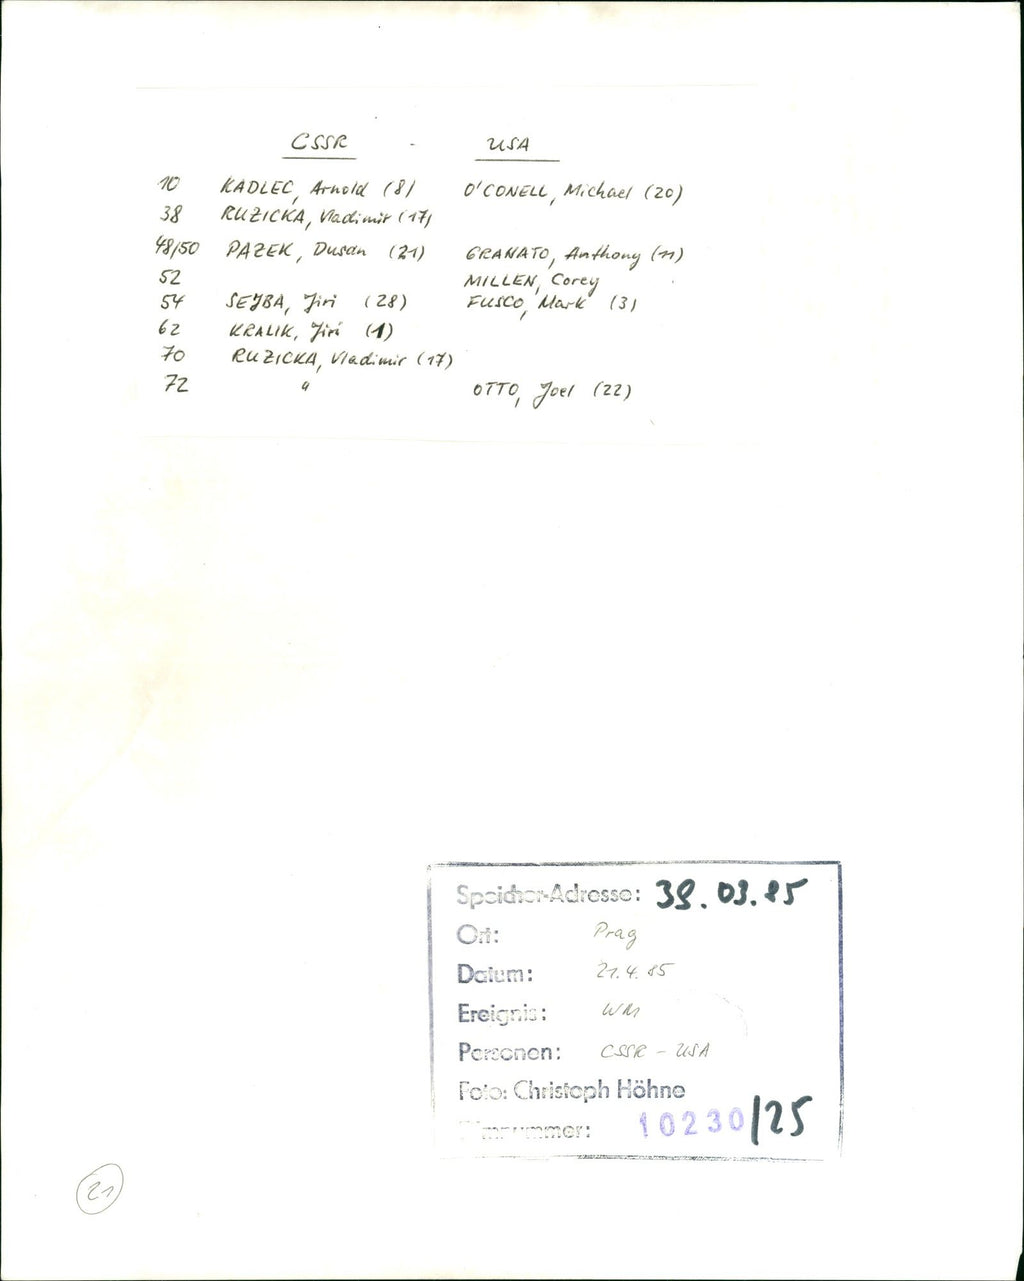 CSSR - USA
10 KADLEC, Arnold (8) O'CONELL, Michael (20)
38 RUZICKA, Vladimir (17)
48/50 PAZEK, Dusan (21) GRANATO, Anthony (11)
52 MILLEN, Corey
54 SEJBA, Jiri (28) FUSCO, Mark (3)
62 KRALIK, Jiri (1)
70 RUZICKA, Vladimir (17)
72 " OTTO, Joel (22)
Speicher-Adresse: 39.03.85
Ort: Prag
Datum: 21.4.85
Ereignis: WM
Personen: CSSR - USA
Foto: Christoph Höhne
Filmnummer: 10230/25
21